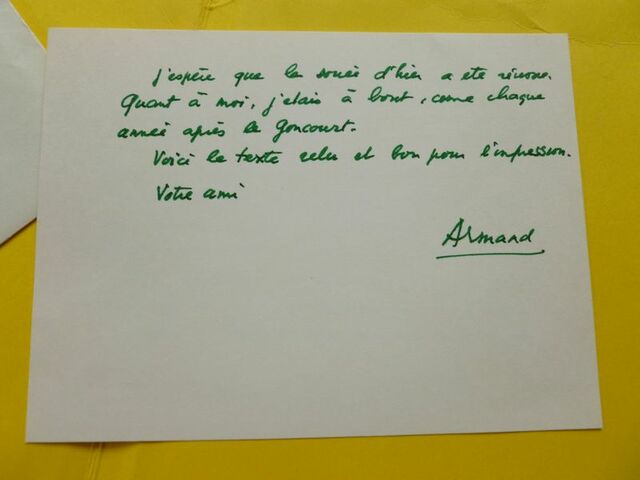 j'espère que la soirée d'hier a été réussie.
Quant à moi, j'étais à bout, comme chaque
année après le Goncourt.
Voici le texte relu et bon pour l'impression.
Votre ami
Armand